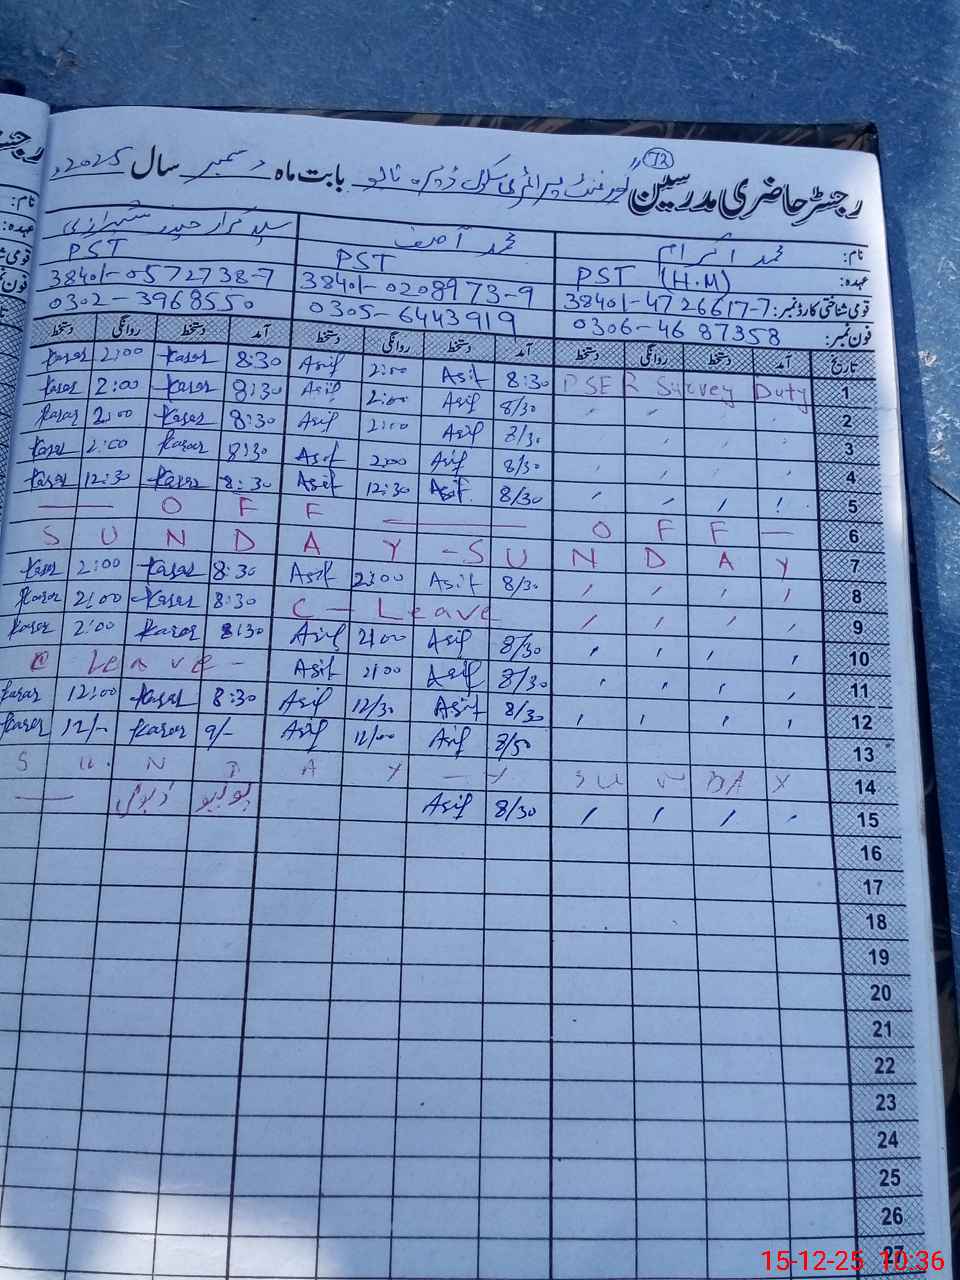 رجسٹر حاضری مدرسین گورنمنٹ پرائمری سکول ڈیرہ نالو بابت ماہ دسمبر سال 2025ء
72
نام: محمد اکرام محمد آصف سید کرار حیدر شیرازی
عہدہ: PST (H.M) PST PST
قومی شناختی کارڈ نمبر: 38401-4726617-7 38401-0208973-9 38401-0572738-7
فون نمبر: 0306-4687358 0305-6443919 0302-3968550
تاریخ آمد دستخط روانگی دستخط آمد دستخط روانگی دستخط آمد دستخط روانگی دستخط
Karar 2:00 Karar 8:30 Asif 2:00 Asif 8:30 PSER Survey Duty 1
Karar 2:00 Karar 8:30 Asif 2:00 Asif 8/30 〃 〃 〃 〃 2
Karar 2:00 Karar 8:30 Asif 2:00 Asif 8/30 〃 〃 〃 〃 3
Karar 2:00 Karar 8:30 Asif 2:00 Asif 8/30 〃 〃 〃 〃 4
Karar 12:30 Karar 8:30 Asif 12:30 Asif 8/30 〃 〃 〃 〃 5
— O F F — O F F — 6
S U N D A Y - S U N D A Y 7
Karar 2:00 Karar 8:30 Asif 2:00 Asif 8/30 〃 〃 〃 〃 8
Karar 2:00 Karar 8:30 C - Leave 〃 〃 〃 〃 9
Karar 2:00 Karar 8:30 Asif 2:00 Asif 8/30 〃 〃 〃 〃 10
C Leave - Asif 2:00 Asif 8/30 〃 〃 〃 〃 11
Karar 12:00 Karar 8:30 Asif 12/30 Asif 8/30 〃 〃 〃 〃 12
Karar 12/- Karar 9/- Asif 12/00 Asif 8/50 13
S U N D A Y - SUNDAY 14
— پولیو ڈیوٹی Asif 8/30 〃 〃 〃 〃 15
16
17
18
19
20
21
22
23
24
25
26
27
15-12-25 10:36